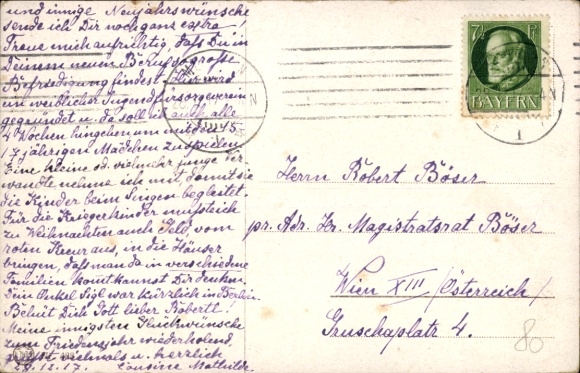 und innige Neujahrswünsche
sende ich Dir noch ganz extra
Freue mich aufrichtig, daß Du in
Deinem neuen Berufe große
Befriedigung findest. Hier wird
ein weiblicher Jugendfürsorgeverein
gegründet u. da soll ich auch alle
4 Wochen hingehen um mit den 15-
17 jährigen Mädchen zu spielen.
Eine kleine od. vielmehr junge Ver-
wandte nehme ich mit, damit sie
die Kinder beim Singen begleitet.
Für die Kriegerkinder mußte ich
zu Weihnachten auch Geld, vom
roten Kreuz aus, in die Häuser
bringen, daß man da in verschiedene
Familien kommt kannst Dir denken.
Dein Onkel Sigl war kürzlich in Berlin.
Behüt Dich Gott lieber Robertl!
Meine innigsten Glückwünsche
zum Friedensjahr wiederholend,
grüßt vielmals u. herzlich
29.12.17. Cousine Mathilde.
7½ Pf
BAYERN
Herrn Robert Böser
pr. Adr. Hr. Magistratsrat Böser
Wien XIII / Österreich /
platz 4.
80